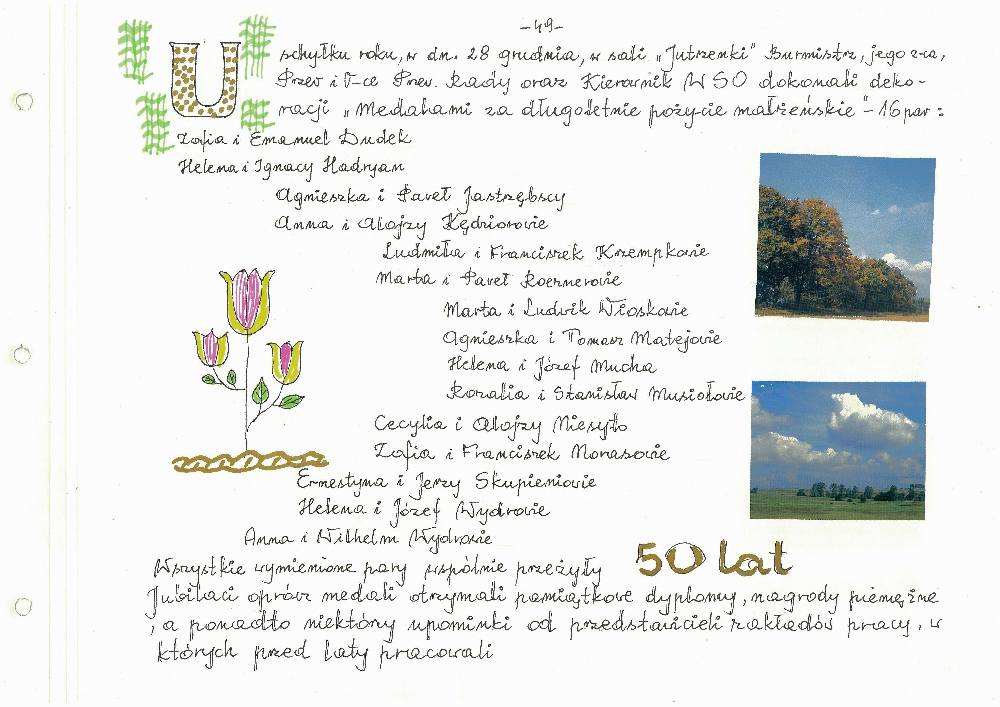 -49-
U schyłku roku, w dn. 28 grudnia, w sali „Jutrzenki" Burmistrz, jego z-ca,
Przew i V-ce Prew. Rady oraz Kierownik WSO dokonali deko-
racji „Medalami za długoletnie pożycie małżeńskie" - 16 par :
Zofia i Emanuel Dudek
Helena i Ignacy Hadryan
Agnieszka i Paweł Jastrzębscy
Anna i Alojzy Kędziorowie
Ludmiła i Franciszek Krzempkowie
Marta i Paweł Roemerowie
Marta i Ludwik Włoskowie
Agnieszka i Tomasz Matejowie
Helena i Józef Mucha
Rozalia i Stanisław Musiołowie
Cecylia i Alojzy Niesyto
Zofia i Franciszek Morasowie
Ernestyna i Jerzy Skupieniowie
Helena i Józef Wydrowie
Anna i Wilhelm Wydrowie
Wszystkie wymienione pary wspólnie przeżyły 50 lat
Jubilaci oprócz medali otrzymali pamiątkowe dyplomy, nagrody pieniężne
, a ponadto niektóry upominki od przedstawicieli zakładów pracy, w
których przed laty pracowali